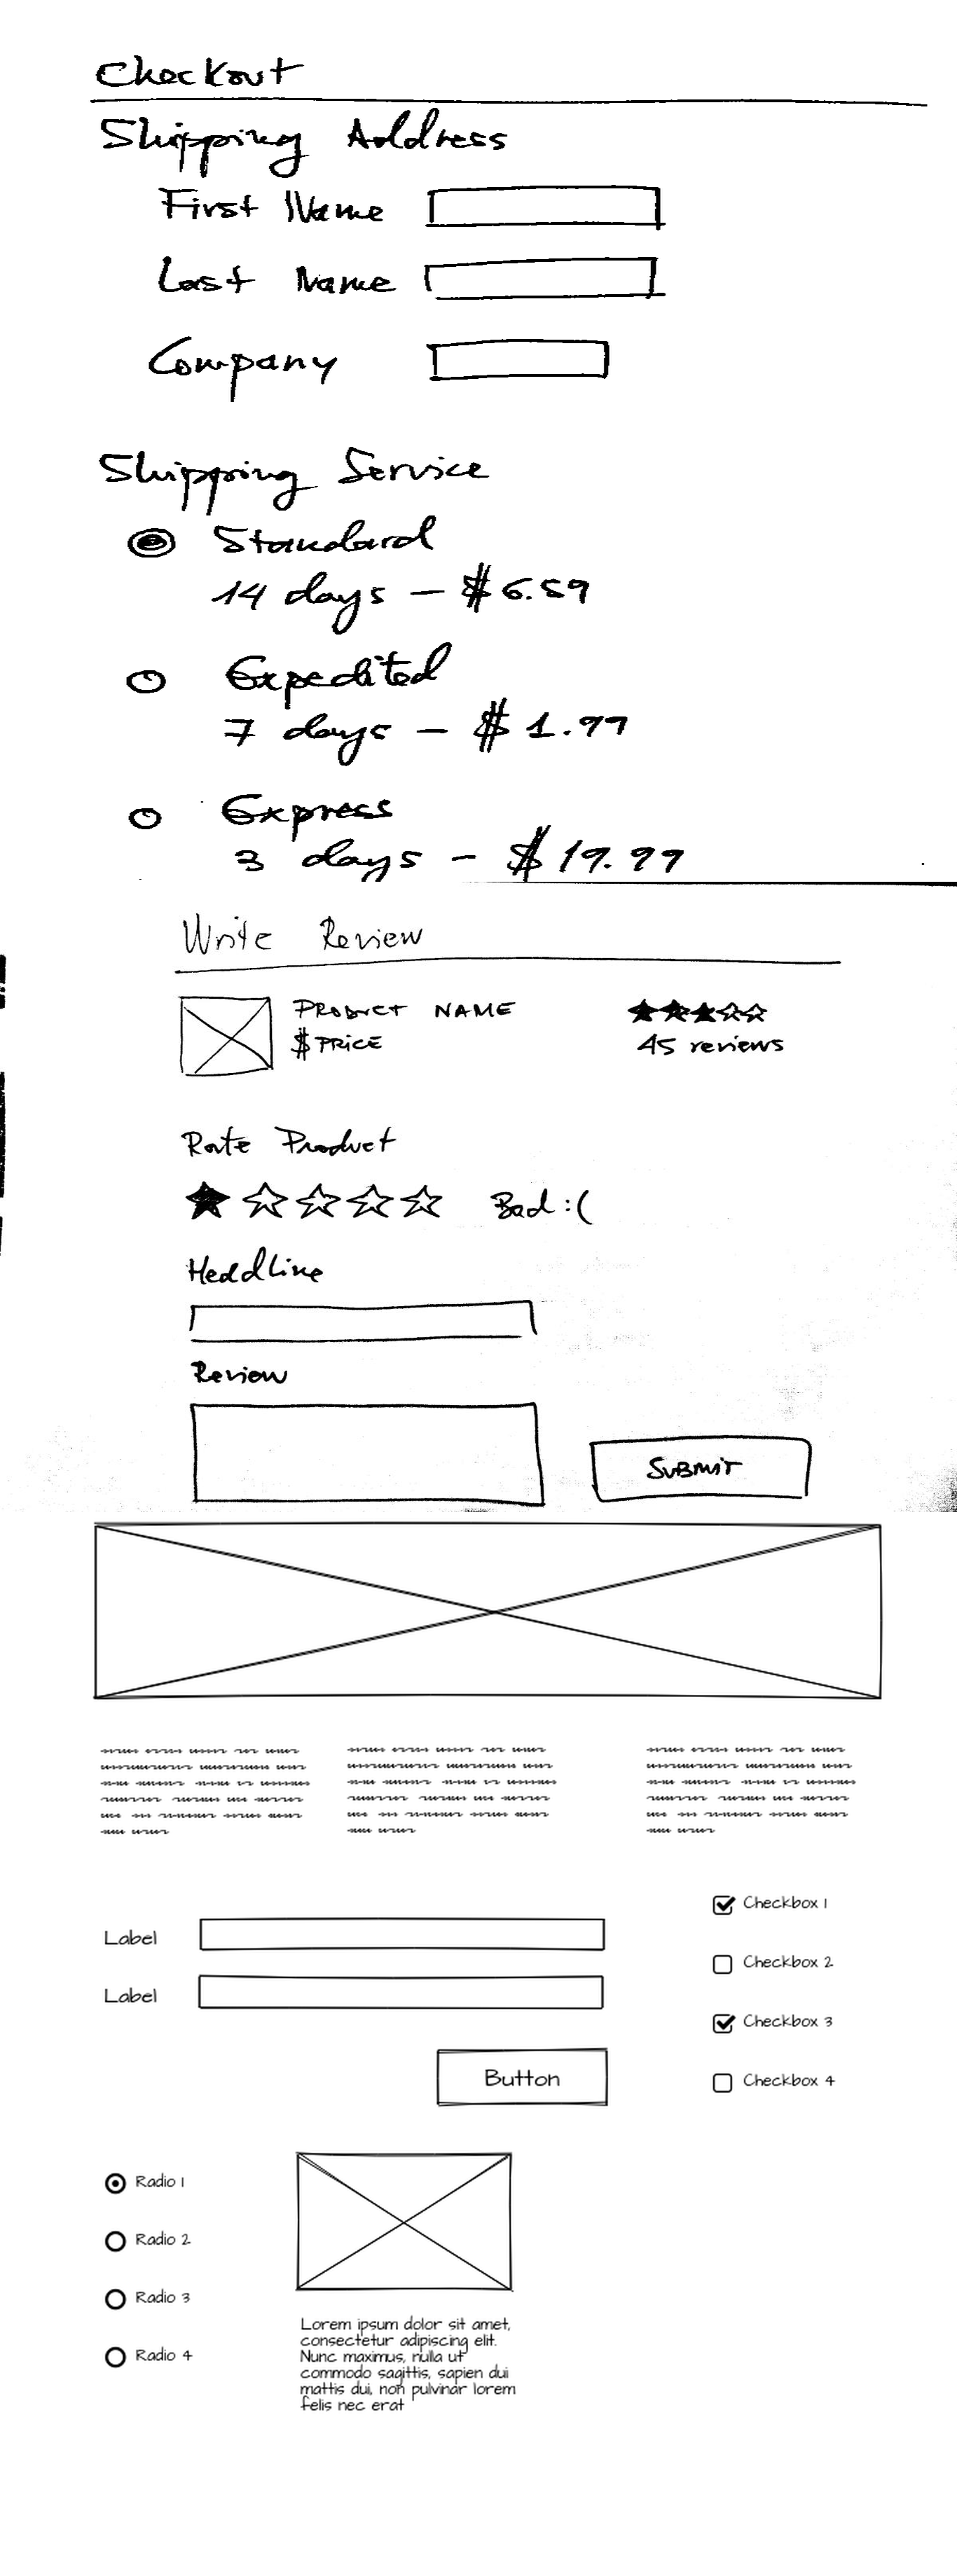 Checkout
Shipping Address
First Name
Last Name
Company
Shipping Service
Standard
14 days - $6.59
Expedited
7 days - $1.99
Express
3 days - $19.99
Write Review
PRODUCT NAME
$PRICE
45 reviews
Rate Product
Bad :(
Headline
Review
SUBMIT
Checkbox 1
Label
Checkbox 2
Label
Checkbox 3
Button
Checkbox 4
Radio 1
Radio 2
Radio 3
Radio 4
Lorem ipsum dolor sit amet,
consectetur adipiscing elit.
Nunc maximus, nulla ut
commodo sagittis, sapien dui
mattis dui, non pulvinar lorem
felis nec erat